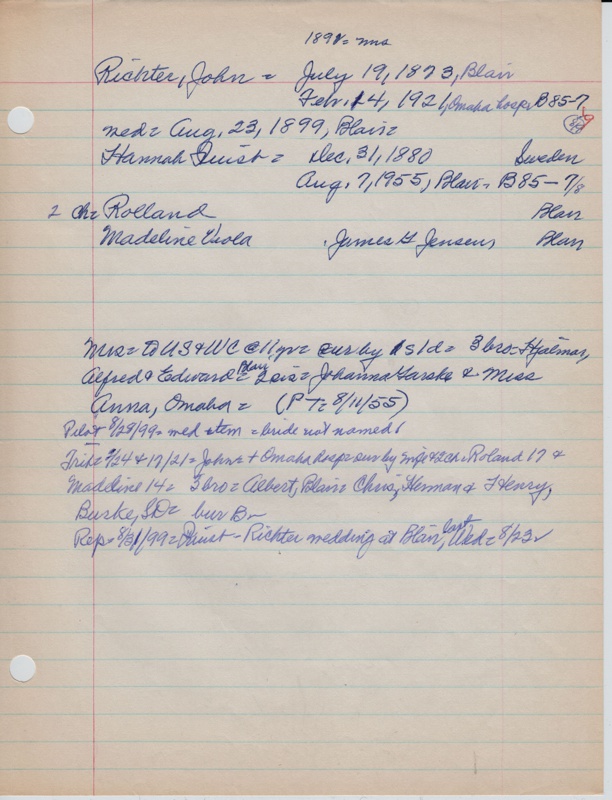 1898 = mrs
Richter, John = July 19, 1873, Blair
Feb. 14, 1921, Omaha hosp = B85-7
wed = Aug. 23, 1899, Blair =
Hannah Quist = Dec. 31, 1880 Sweden
Aug. 7, 1955, Blair = B85-7/8
2 ch = Rolland Blair
Madeline James G Jensen, Blair
Mrs = to US & WC @ 11 yr = sur by 1 s 1 d = 3 bro = Hjalmar,
Alfred & Edward = Blair 2 sis = Johanna Garske & Miss
Anna, Omaha = (PT = 8/11/55)
Pilot 8/28/99 = wed item = bride not named
Trib = 2/24 & 17/21 = John = + Omaha hosp = sur by wife & 2 ch = Roland 17 &
Madeline 14 = 3 bro = Albert, Blair = Chris, Herman & Henry,
Burke, SD = bur B =
Rep = 8/31/99 = Quist - Richter wedding at Blair, last Wed = 8/23